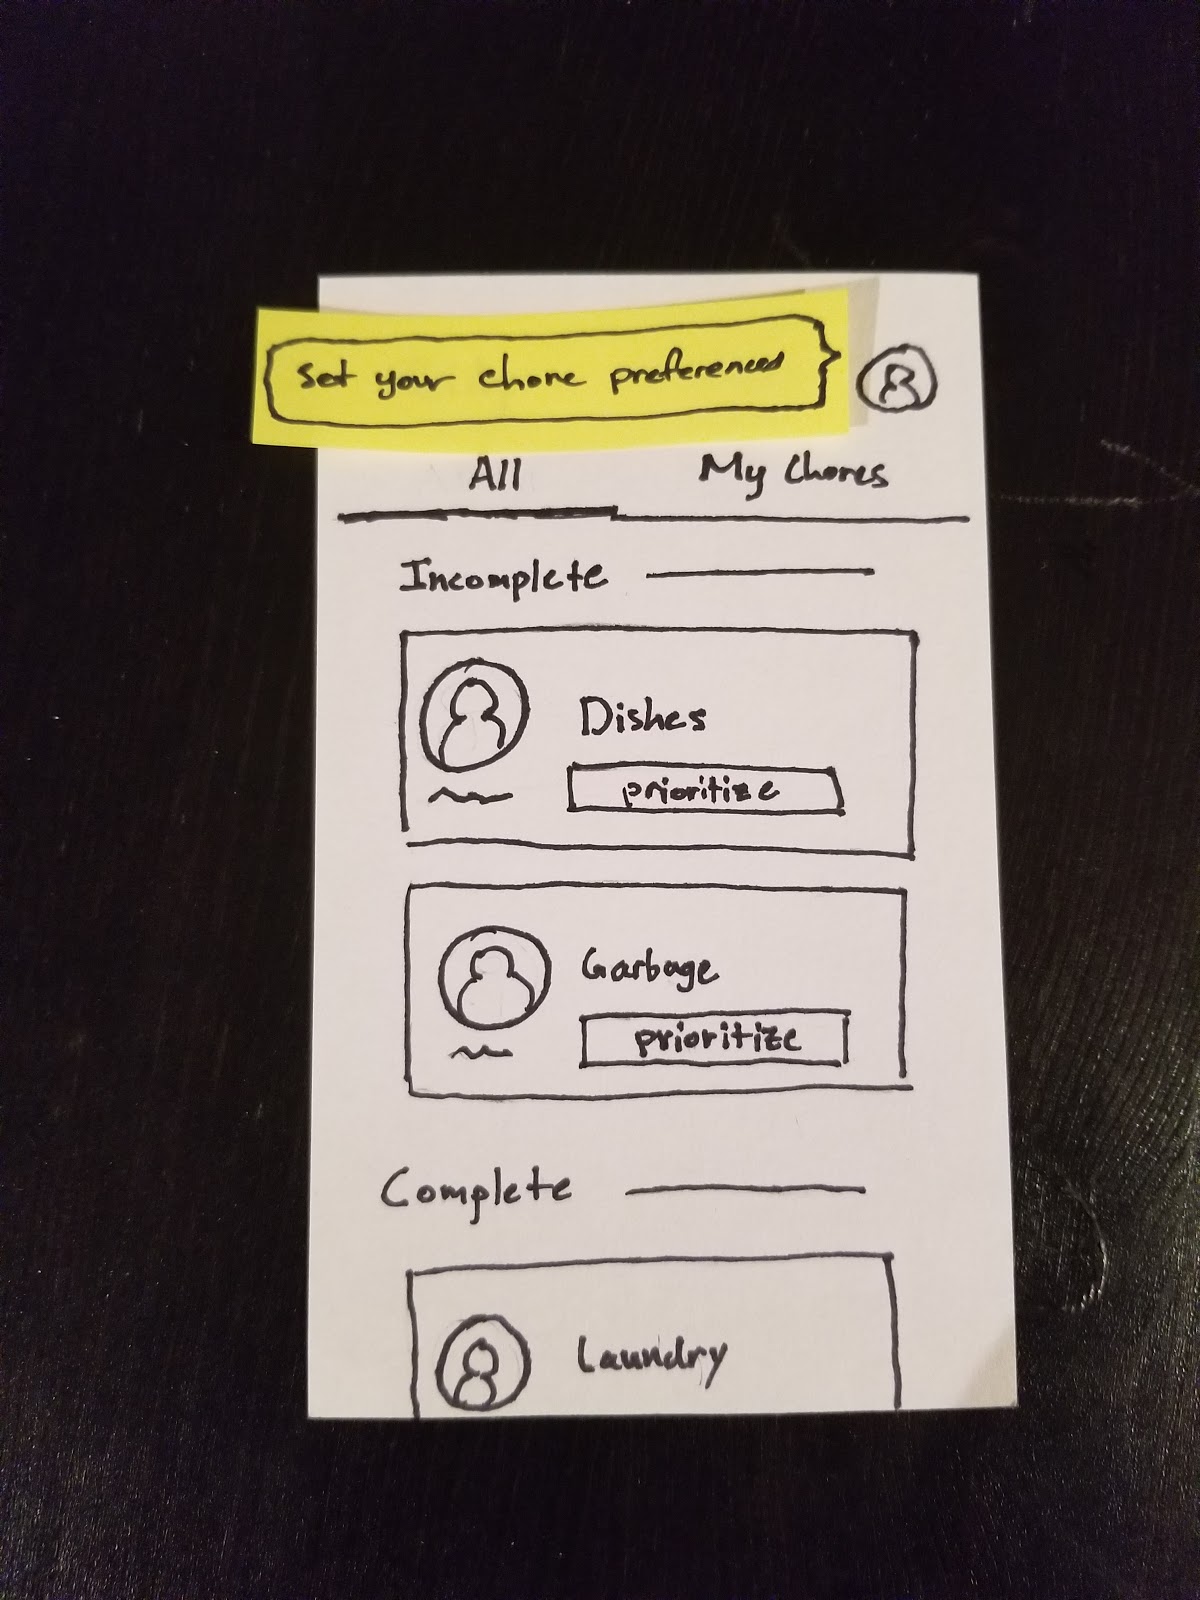 Set your chore preferences
All My Chores
Incomplete
Dishes
prioritize
Garbage
prioritize
Complete
Laundry